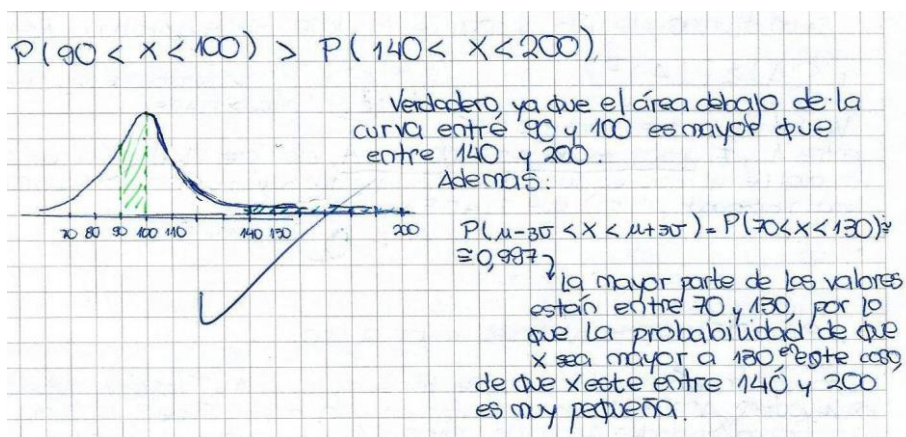 P(90 < x < 100) > P(140 < x < 200).
Verdadero, ya que el área debajo de la
curva entre 90 y 100 es mayor que
entre 140 y 200.
Además:
70 80 90 100 110 140 150 200
P(μ-3σ < x < μ+3σ) = P(70 < x < 130) ≅
≅ 0,997
la mayor parte de los valores
están entre 70 y 130, por lo
que la probabilidad de que
x sea mayor a 130, en este caso,
de que x este entre 140 y 200
es muy pequeña.